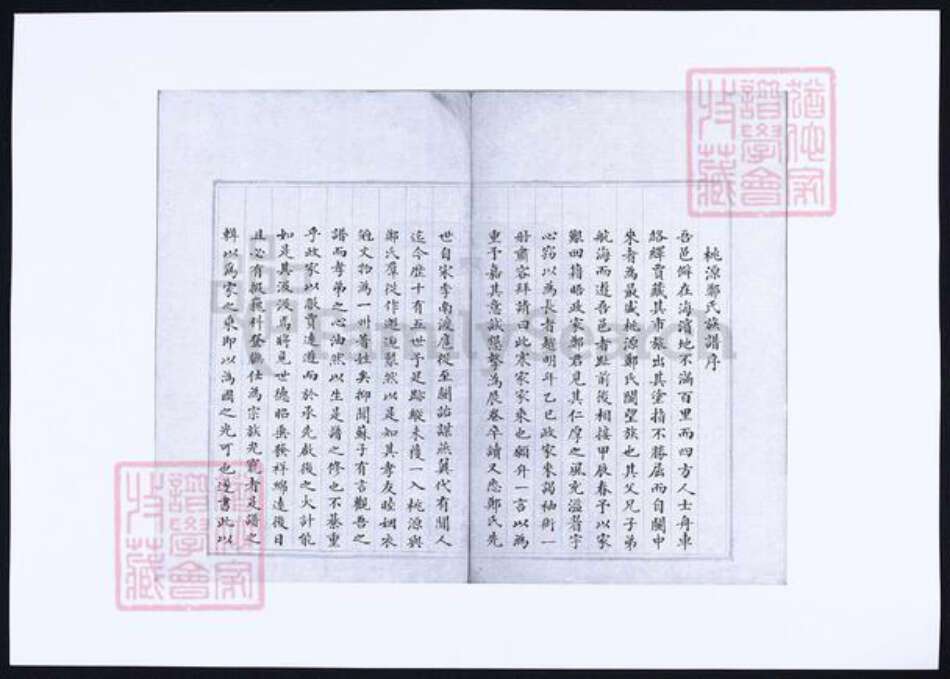 桃源鄭氏族譜序
吾邑僻在海濱地不滿百里而四方人士舟車
絡繹賈藏其市旅出其塗指不勝屈而自閩中
來者為最盛桃源鄭氏閩望族也其父兄子弟
航海而遊吾邑者趾前後相接甲辰春予以家
艱回籍晤政家鄭君見其仁厚之風充溢眉宇
心竊以為長者越明年乙巳政家來謁袖術一
冊肅容拜請曰此宋家家乘也願弁一言以為
重予嘉其意誠懇摯為展卷卒讀又悉鄭氏先
世自宋季南渡扈從至閩詒謀燕翼代有聞人
迄今歷十有五世予足跡縱未獲一入桃源與
鄭氏羣從作邂逅歡然以是知其孝友睦姻衣
冠文物為一州著姓矣抑聞蘇子有言觀吾之
譜而孝弟之心油然以生是譜之修也不綦重
乎政家以服賈遠遊而於承先啟後之大計能
如是其汲汲焉將見世德昭垂發祥綿遠後日
且必有掇巍科登膴仕為宗族光寵者是譜之
輯以為家之乘即以為國之光可也遂書此以
譜學會
收藏
譜學會
收藏